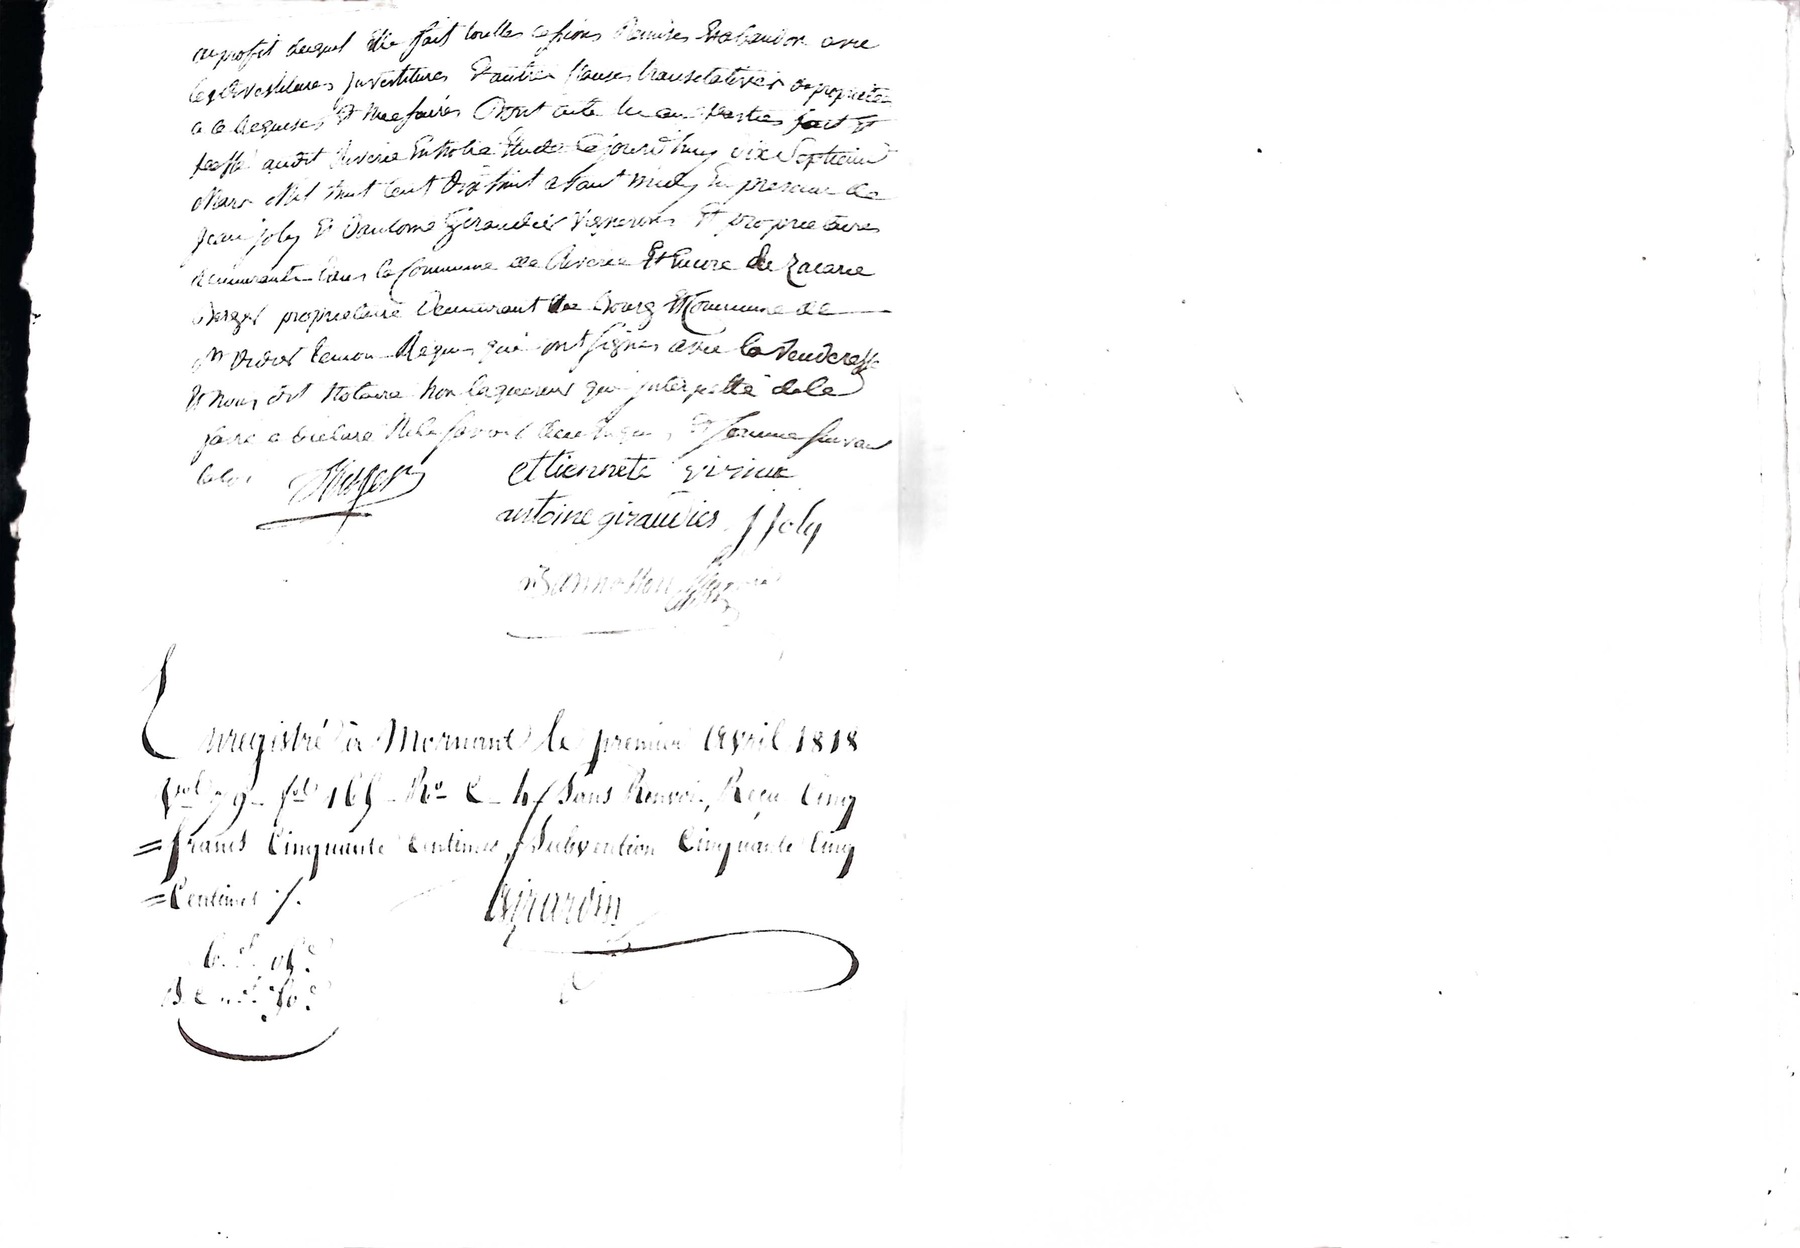 au profit duquel Elle fait toutes cessions Remises Et abandon avec
les devestitures Investitures Et autres clauses translatives de propriété
a ce Requises Et necessaires Dont acte lu aux parties fait Et
passé audit Riverie En notre Etude Cejourd'huy dix Sept
Mars Mil huit Cent Dix huit avant midy En presence de
Jean Joly Et Antoine Giraudier Vignerons Et proprietaires
demeurants dans la Commune de Riverie Et Encore de Zacarie
proprietaire Demeurant au Bourg Et Commune de
St Didier temoins Requis qui ont signés avec la Venderesse
Et nous dit Notaire non l'acquereur qui interpellé de le
faire a declaré Ne le savoir de ce Requis Et Somme suivant
la loi
ettiennete virieux
antoine giraudier J Joly
Enregistré à Mornant le premier Avril 1818
vol 79 fol 165 Ro C 4 Sans Renvoi, Reçu Cinq
=francs Cinquante Centimes, Subvention Cinquante Cinq
=Centimes ./.
Girardin